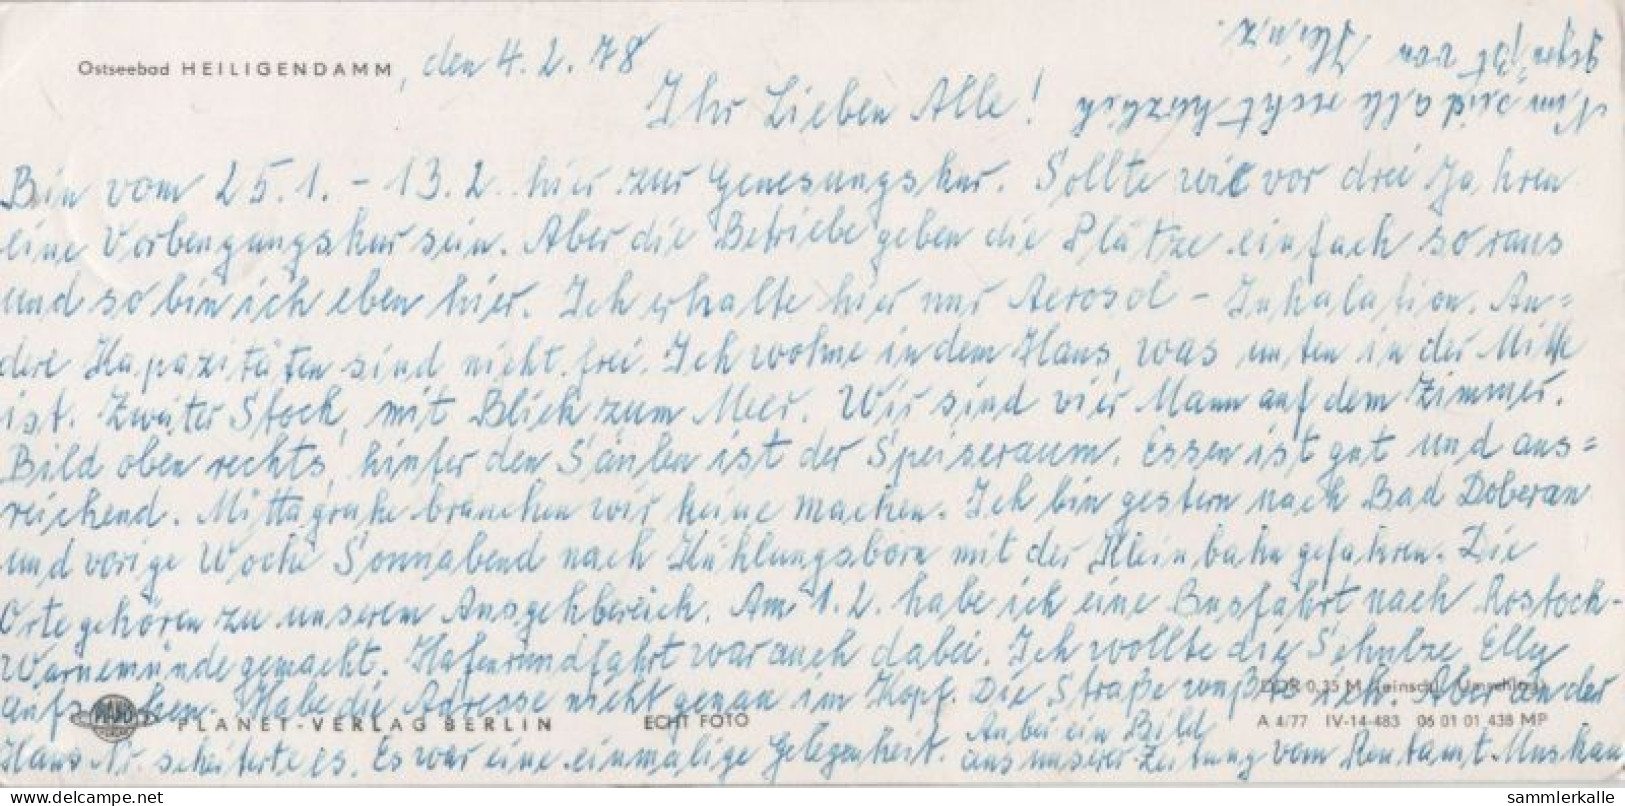 Ostseebad HEILIGENDAMM, den 4.2.78
Ihr Lieben Alle!
Bin vom 25.1.-13.2. hier zur Genesungskur. Sollte wie vor drei Jahren
eine Vorbeugungskur sein. Aber die Betriebe geben die Plätze einfach so raus
und so bin ich eben hier. Ich erhalte hier nur Aerosol-Inhalation. An=
dere Kapazitäten sind nicht frei. Ich wohne in dem Haus, was unten in der Mitte
ist. Zweiter Stock, mit Blick zum Meer. Wir sind vier Mann auf dem Zimmer.
Bild oben rechts, hinter den Säulen ist der Speiseraum. Essen ist gut und aus=
reichend. Mittagruhe brauchen wir keine machen. Ich bin gestern nach Bad Doberan
und vorige Woche Sonnabend nach Kühlungsborn mit der Kleinbahn gefahren. Die
Orte gehören zu unserem Ausgehbereich. Am 1.2. habe ich eine Busfahrt nach Rostock-
Warnemünde gemacht. Hafenrundfahrt war auch dabei. Ich wollte die Schulze Elly
aufsuchen. Habe die Adresse nicht genau im Kopf. Die Straße wußte ich. Aber an der
Haus Nr. scheiterte es. Es war eine einmalige Gelegenheit.
Anbei ein Bild
aus unserer Zeitung vom Rentamt Muskau
Nun seid alle recht herzlich
gegrüßt von Heinz.
PLANET-VERLAG BERLIN
ECHT FOTO
DDR 0,35 M (einschl. Umschlag)
A 4/77 IV-14-483 06 01 01 438 MP
https://www.delcampe.net
sammlerkalle